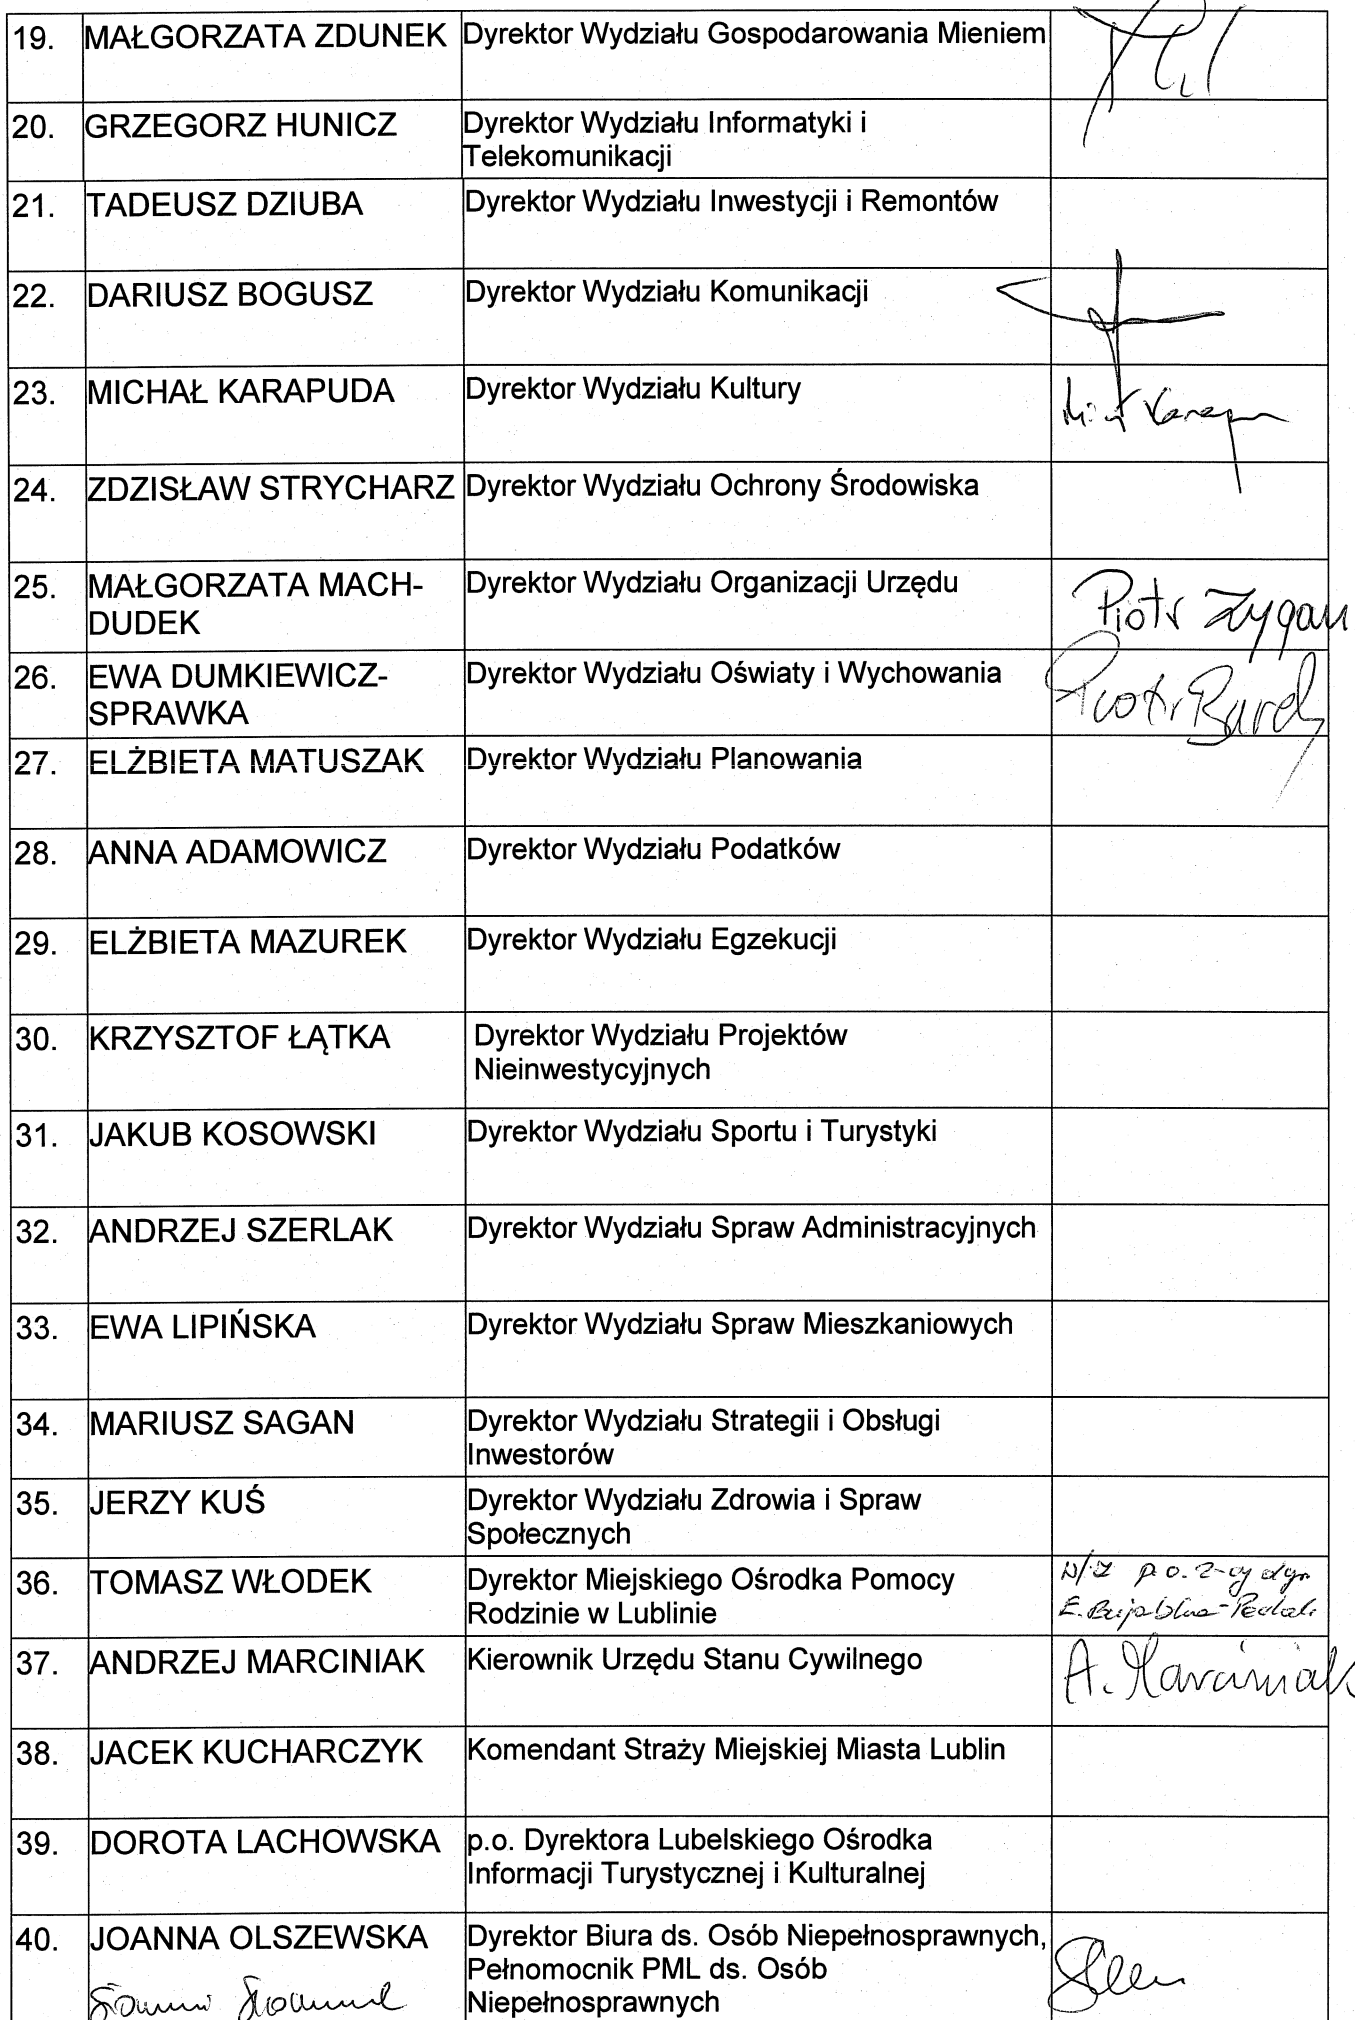 19. MAŁGORZATA ZDUNEK Dyrektor Wydziału Gospodarowania Mieniem
20. GRZEGORZ HUNICZ Dyrektor Wydziału Informatyki i
Telekomunikacji
21. TADEUSZ DZIUBA Dyrektor Wydziału Inwestycji i Remontów
22. DARIUSZ BOGUSZ Dyrektor Wydziału Komunikacji
23. MICHAŁ KARAPUDA Dyrektor Wydziału Kultury
24. ZDZISŁAW STRYCHARZ Dyrektor Wydziału Ochrony Środowiska
25. MAŁGORZATA MACH- Dyrektor Wydziału Organizacji Urzędu Piotr Zygan
DUDEK
26. EWA DUMKIEWICZ- Dyrektor Wydziału Oświaty i Wychowania Piotr
SPRAWKA
27. ELŻBIETA MATUSZAK Dyrektor Wydziału Planowania
28. ANNA ADAMOWICZ Dyrektor Wydziału Podatków
29. ELŻBIETA MAZUREK Dyrektor Wydziału Egzekucji
30. KRZYSZTOF ŁĄTKA Dyrektor Wydziału Projektów
Nieinwestycyjnych
31. JAKUB KOSOWSKI Dyrektor Wydziału Sportu i Turystyki
32. ANDRZEJ SZERLAK Dyrektor Wydziału Spraw Administracyjnych
33. EWA LIPIŃSKA Dyrektor Wydziału Spraw Mieszkaniowych
34. MARIUSZ SAGAN Dyrektor Wydziału Strategii i Obsługi
Inwestorów
35. JERZY KUŚ Dyrektor Wydziału Zdrowia i Spraw
Społecznych
36. TOMASZ WŁODEK Dyrektor Miejskiego Ośrodka Pomocy p.o. z-cy dyr
Rodzinie w Lublinie E.
37. ANDRZEJ MARCINIAK Kierownik Urzędu Stanu Cywilnego A. Marciniak
38. JACEK KUCHARCZYK Komendant Straży Miejskiej Miasta Lublin
39. DOROTA LACHOWSKA p.o. Dyrektora Lubelskiego Ośrodka
Informacji Turystycznej i Kulturalnej
40. JOANNA OLSZEWSKA Dyrektor Biura ds. Osób Niepełnosprawnych,
Pełnomocnik PML ds. Osób
Niepełnosprawnych